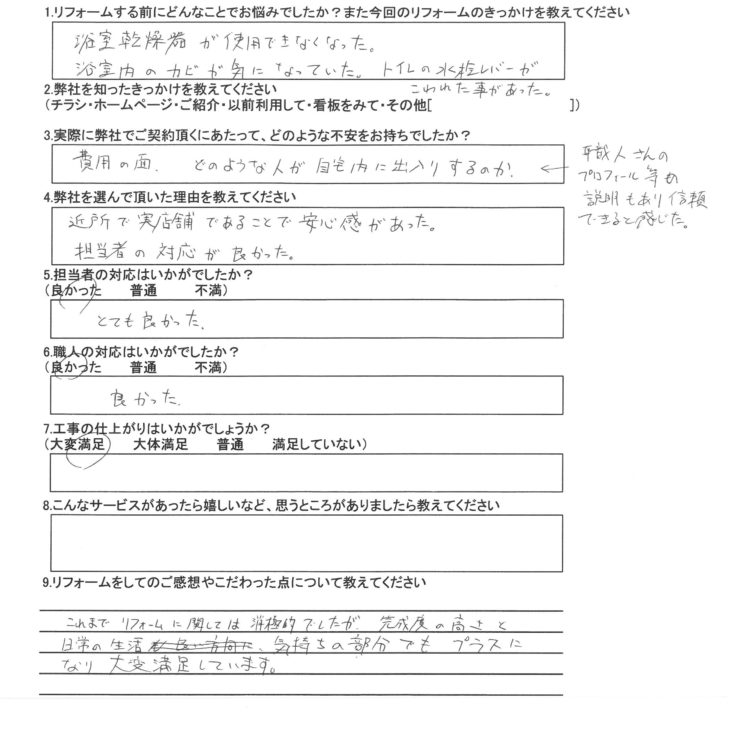 1.リフォームする前にどんなことでお悩みでしたか？また今回のリフォームのきっかけを教えてください
浴室乾燥器が使用できなくなった。
浴室内のカビが気になっていた。トイレの水栓レバーが
こわれた事があった。
2.弊社を知ったきっかけを教えてください
(チラシ・ホームページ・ご紹介・以前利用して・看板をみて・その他[ ])
3.実際に弊社でご契約頂くにあたって、どのような不安をお持ちでしたか？
費用の面、どのような人が自宅内に出入りするのか。
←職人さんの
プロフィール等の
説明もあり信頼
できると感じた。
4.弊社を選んで頂いた理由を教えてください
近所で実店舗であることで安心感があった。
担当者の対応が良かった。
5.担当者の対応はいかがでしたか？
(良かった 普通 不満)
とても良かった。
6.職人の対応はいかがでしたか？
(良かった 普通 不満)
良かった。
7.工事の仕上がりはいかがでしょうか？
(大変満足 大体満足 普通 満足していない)
8.こんなサービスがあったら嬉しいなど、思うところがありましたら教えてください
9.リフォームをしてのご感想やこだわった点について教えてください
これまでリフォームに関しては消極的でしたが、完成度の高さと
日常の生活、気持ちの部分でもプラスに
なり大変満足しています。